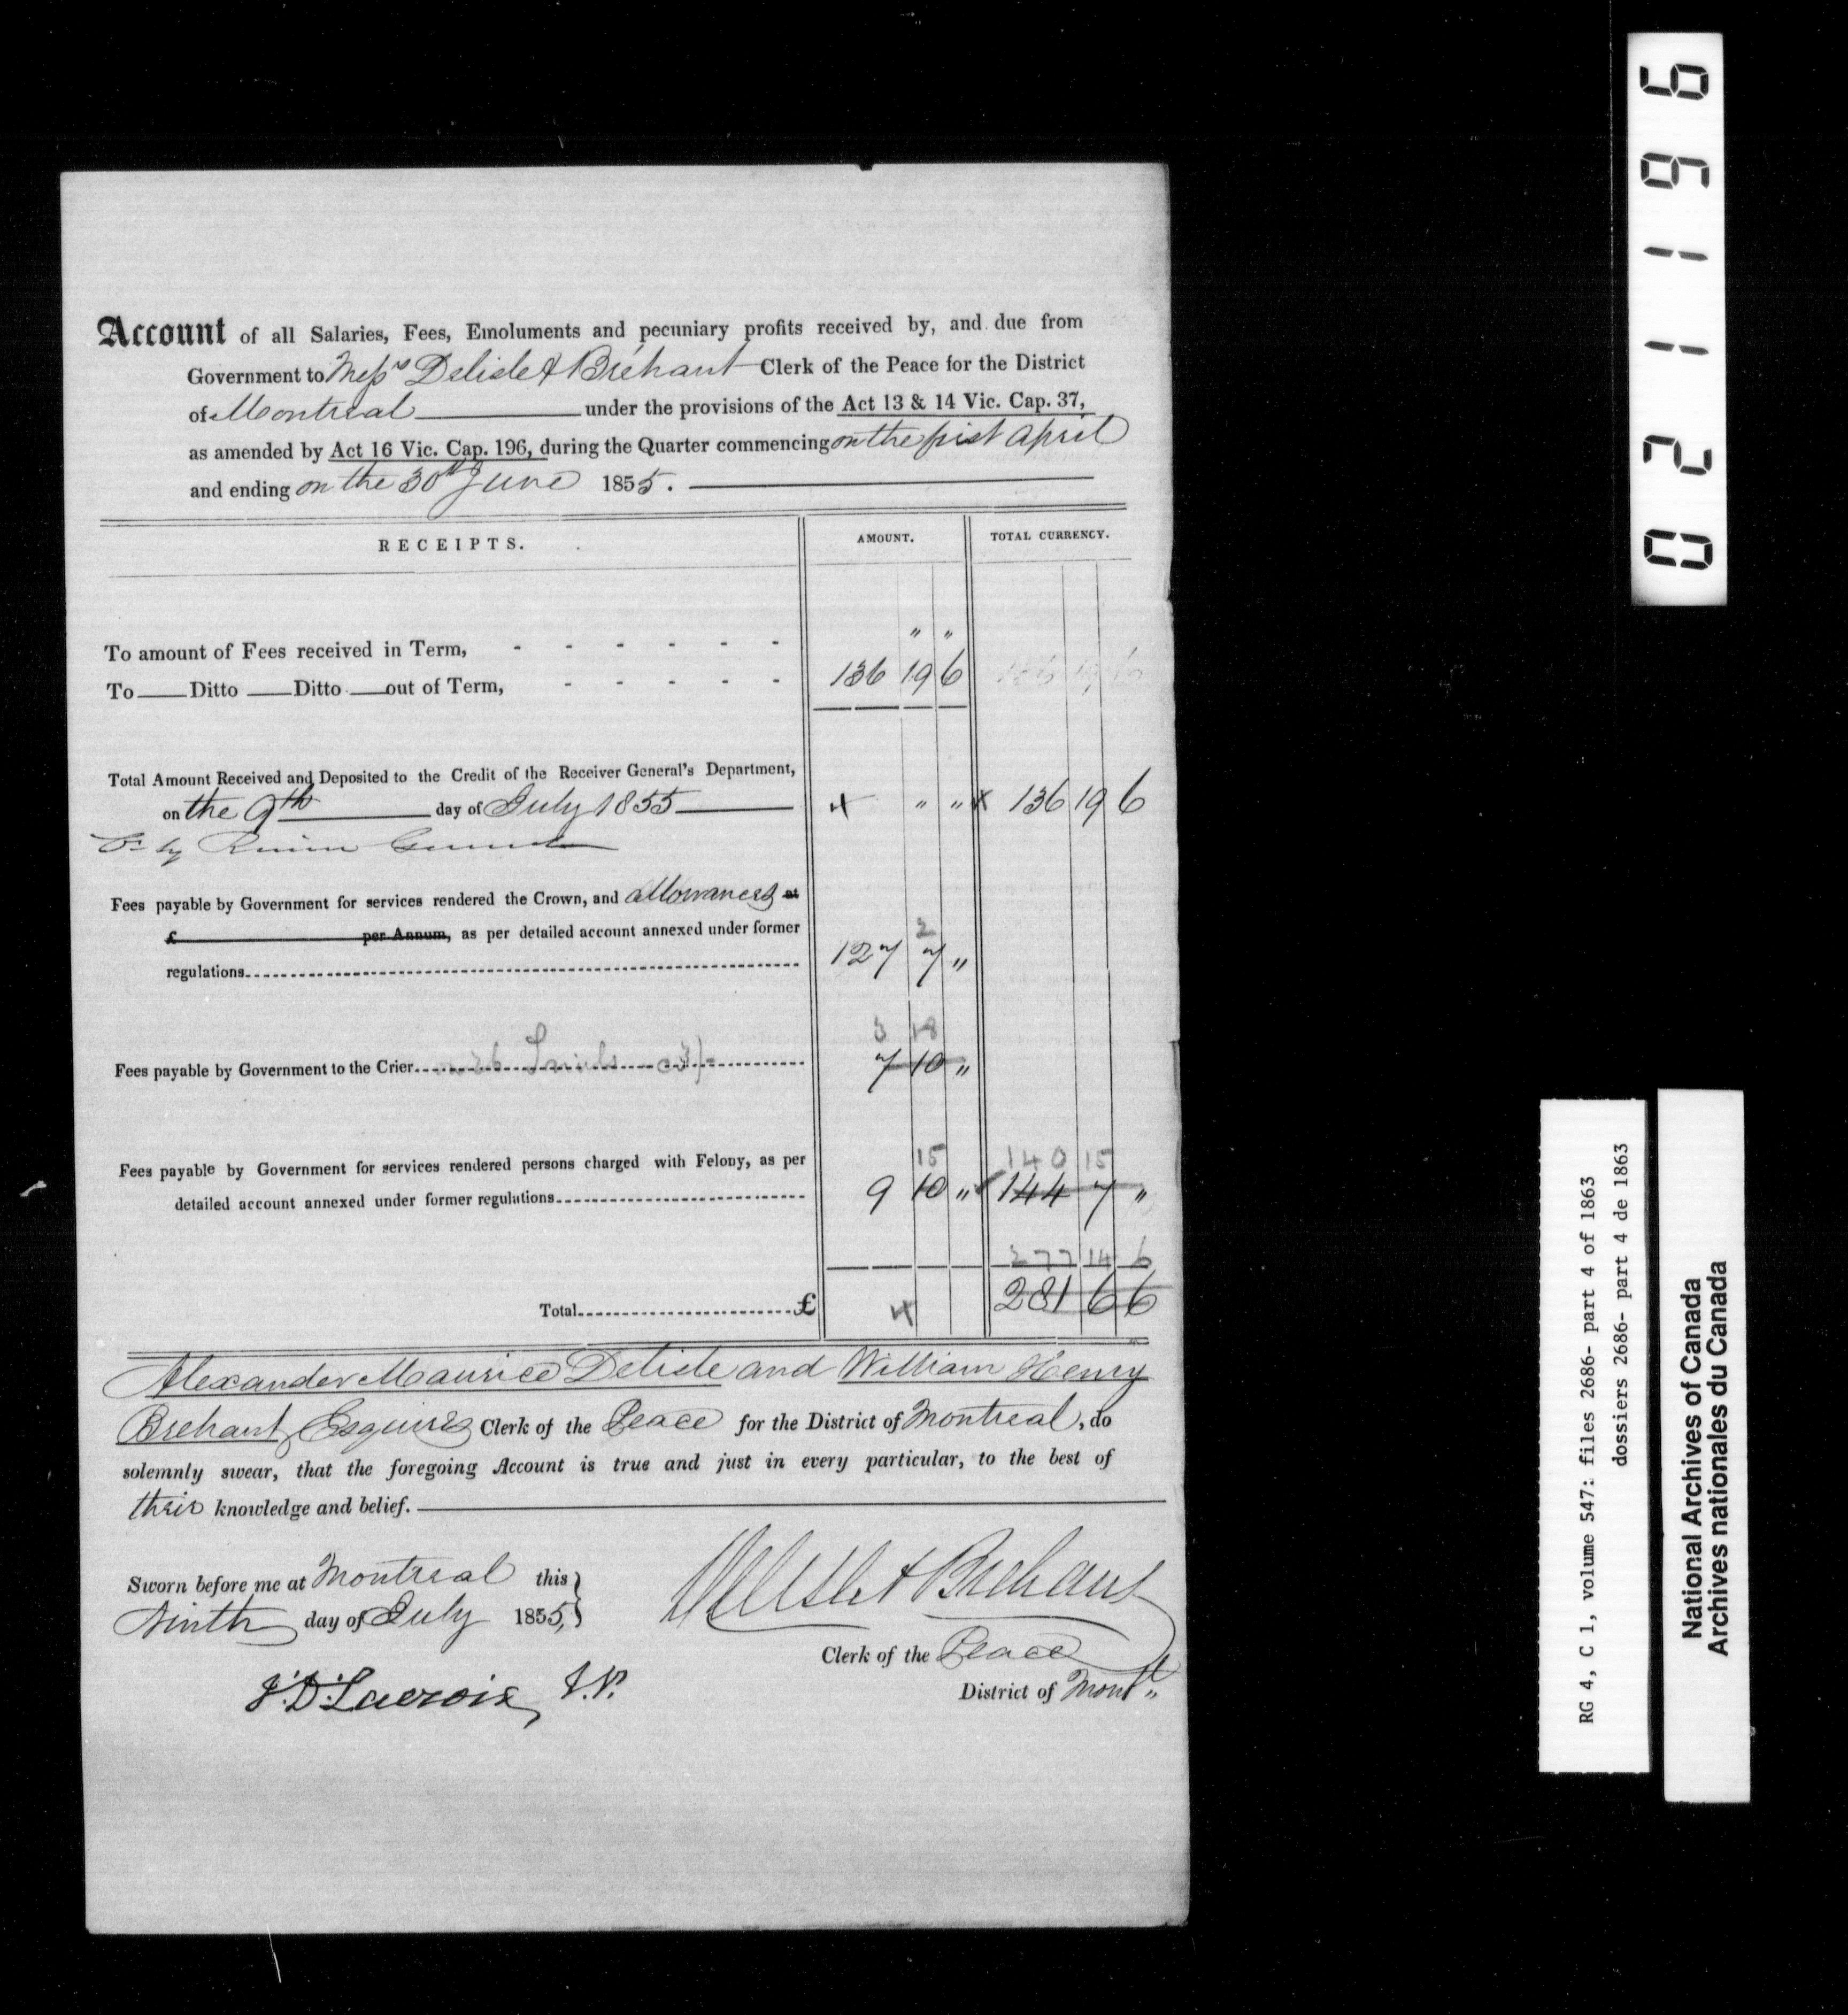 Account of all Salaries, Fees, Emoluments and pecuniary profits received by, and due from
Government to Mess^rs Delisle & Bréhaut Clerk of the Peace for the District
of Montreal under the provisions of the Act 13 & 14 Vic. Cap. 37,
as amended by Act 16 Vic. Cap. 196, during the Quarter commencing on the first April
and ending on the 30th June 1855.
RECEIPTS. AMOUNT. TOTAL CURRENCY.
To amount of Fees received in Term, - - - - - - " "
To Ditto Ditto out of Term, - - - - - 136 19 6 136 19 6
Total Amount Received and Deposited to the Credit of the Receiver General's Department,
on the 9th day of July 1855 " " 136 19 6
Fees payable by Government for services rendered the Crown, and allowances at
£ per Annum, as per detailed account annexed under former
2
regulations 127 7 "
3 18
Fees payable by Government to the Crier 26 7 10 "
Fees payable by Government for services rendered persons charged with Felony, as per 15 140 15
detailed account annexed under former regulations 9 10 " 144 7 "
277 14 6
Total £ 281 6 6
Alexander Maurice Delisle and William Henry
Brehaut, Esquires Clerk of the Peace for the District of Montreal, do
solemnly swear, that the foregoing Account is true and just in every particular, to the best of
their knowledge and belief.
Sworn before me at Montreal this
Ninth day of July 1855,
Delisle & Brehaut
Clerk of the Peace
District of Mont^l
J. D. Lacroix, J.P.
021196
RG 4, C 1, volume 547: files 2686- part 4 of 1863
dossiers 2686- part 4 de 1863
National Archives of Canada
Archives nationales du Canada